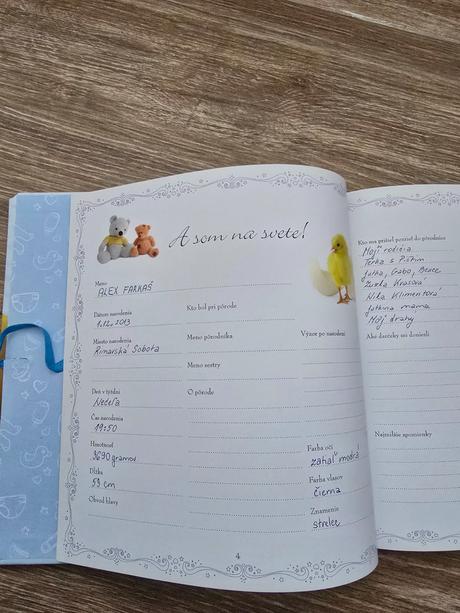 A som na svete!
Meno
ALEX FARKAŠ
Dátum narodenia
1.12.2013
Miesto narodenia
Rimavská Sobota
Deň v týždni
Nedeľa
Čas narodenia
19:50
Hmotnosť
3690 gramov
Dĺžka
53 cm
Obvod hlavy
Kto bol pri pôrode
Meno pôrodníka
Meno sestry
O pôrode
Výzor po narodení
Farba očí
zatiaľ modrá
Farba vlasov
čierna
Znamenie
strelec
4
Kto ma prišiel pozrieť do pôrodnice
Moji rodičia
Terka s Pištim
Jutka, Gabo, Beace
Zuzka Krasová
Nika Klimentová
Jutkina mama
Môj drahý
Aké darčeky mi doniesli
Najmilšie spomienky